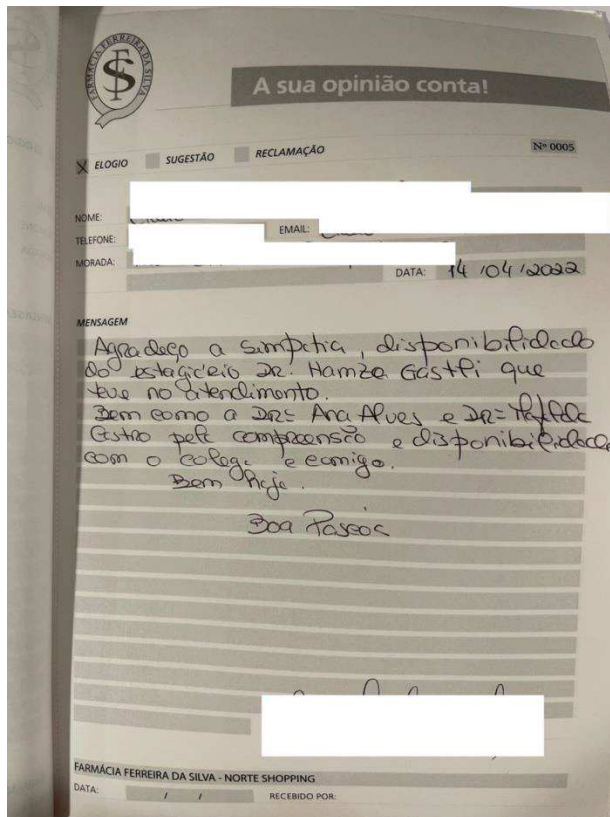 FARMÁCIA FERREIRA DA SILVA
FS
A sua opinião conta!
X ELOGIO SUGESTÃO RECLAMAÇÃO Nº 0005
NOME:
TELEFONE: EMAIL:
MORADA:
DATA: 14/04/2022
MENSAGEM
Agradeço a simpatia, disponibilidade
do estagiário DR. Hamza Gastli que
teve no atendimento.
Bem como a DRª Ana Alves e DRª
Castro pela compreensão e disponibilidade
com o colega e comigo.
Bem haja.
Boa Páscoa
FARMÁCIA FERREIRA DA SILVA - NORTE SHOPPING
DATA: / / RECEBIDO POR: